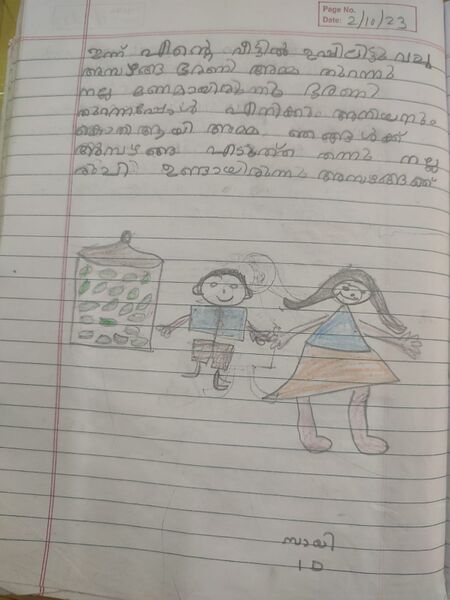 Page No.
Date: 2/10/23
ഇന്ന് എന്റെ വീട്ടിൽ ഉപ്പിലിട്ടു വച്ച
അമ്പഴങ്ങ ഭരണി അമ്മ തുറന്നു
നല്ല മണമായിരുന്നു ഭരണി
തുറന്നപ്പോൾ എനിക്കും അനിയനും
കൊതി ആയി അമ്മ ഞങ്ങൾക്ക്
അമ്പഴങ്ങ എടുത്ത് തന്നു നല്ല
രുചി ഉണ്ടായിരുന്നു അമ്പഴങ്ങക്ക്
സായി
1 D